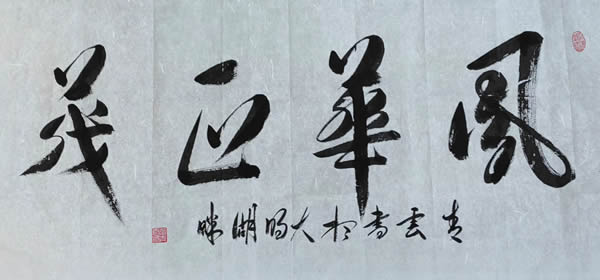 風華正茂
青雲書於大明湖畔